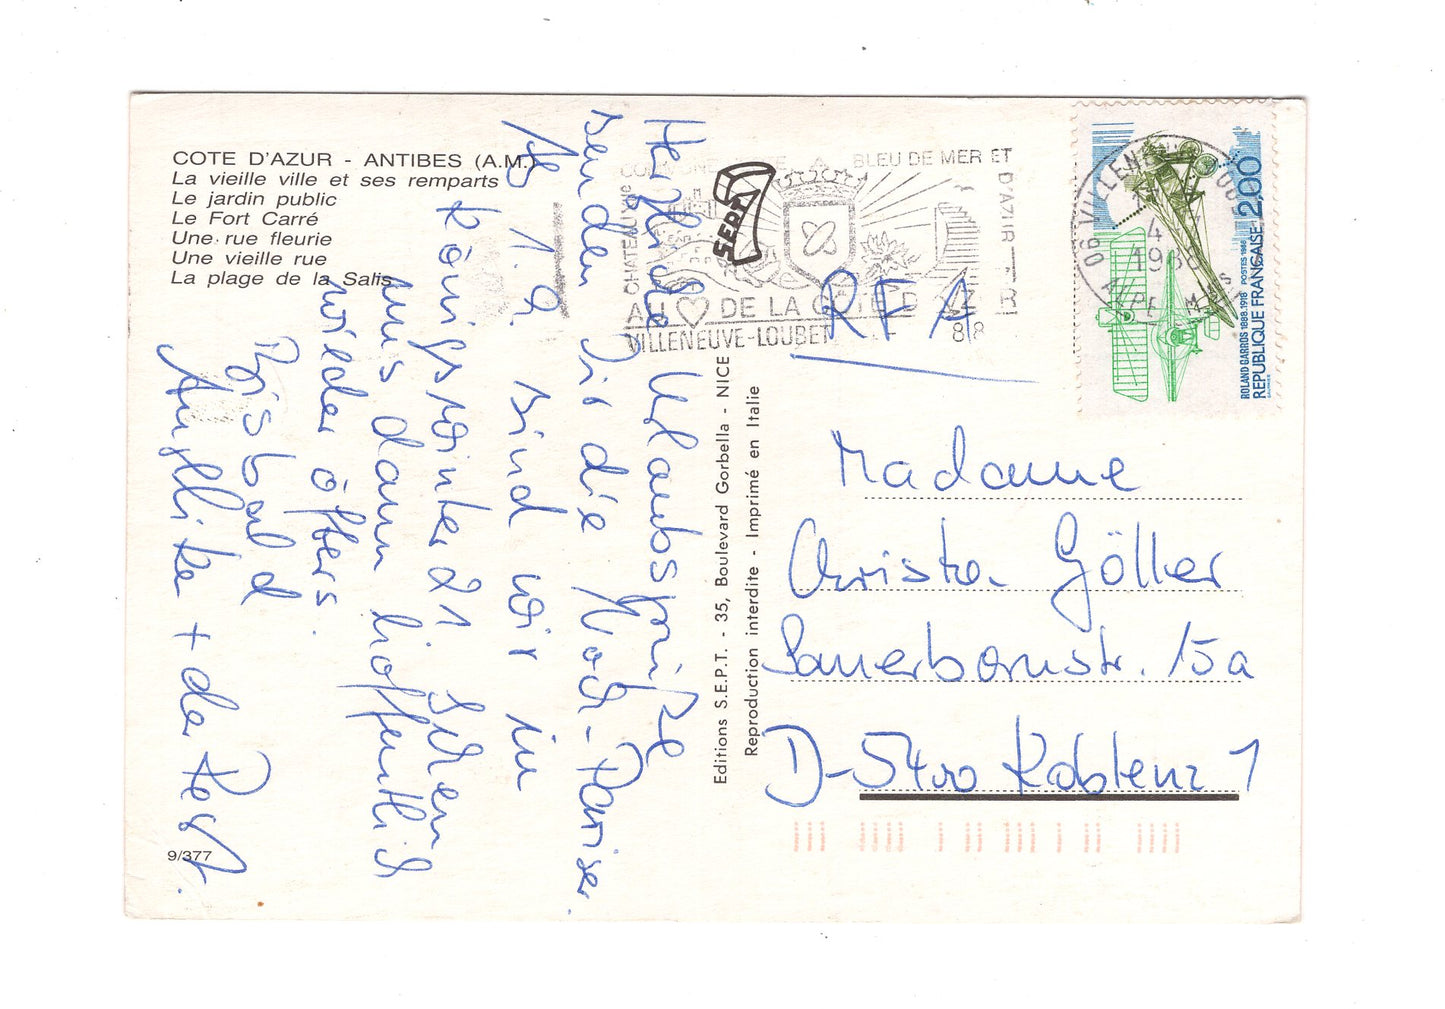 COTE D'AZUR - ANTIBES (A.M.)
La vieille ville et ses remparts
Le jardin public
Le Fort Carré
Une rue fleurie
Une vieille rue
La plage de la Salis
Herzliche Urlaubsgrüße
senden Dir die Noch-Pariser.
Ab 1.9. sind wir in
Königswinter 21 sehen
uns dann hoffentlich
wieder öfters.
Bis bald
+ der Rest.
9/377
Editions S.E.P.T. - 35, Boulevard Gorbella - NICE
Reproduction interdite - Imprimé en Italie
SEPT
COMMUNE
BLEU DE MER ET
D'AZUR
CHATEAUX
AU DE LA COTE D'AZUR
VILLENEUVE-LOUBET
88
RFA
06 VILLENEUVE LOUBET
4
1988
ALPES MMES
2,00
ROLAND GARROS 1888.1918 POSTES 1988
REPUBLIQUE FRANÇAISE
Madame
Christa Göller
Sauerbornstr. 15a
D-5400 Koblenz 1